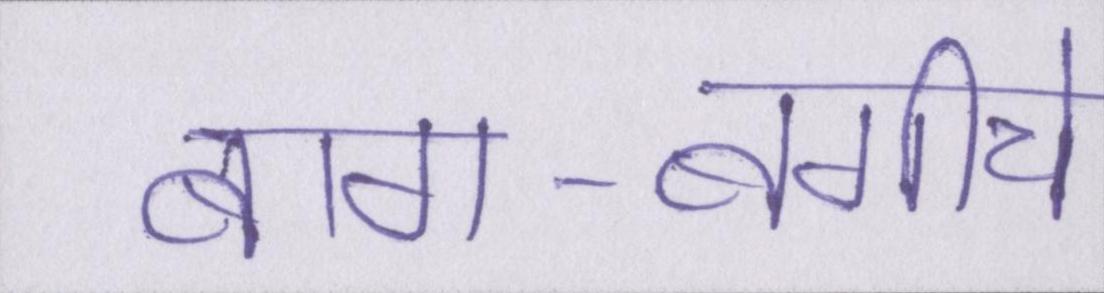 बाग-बगीचे